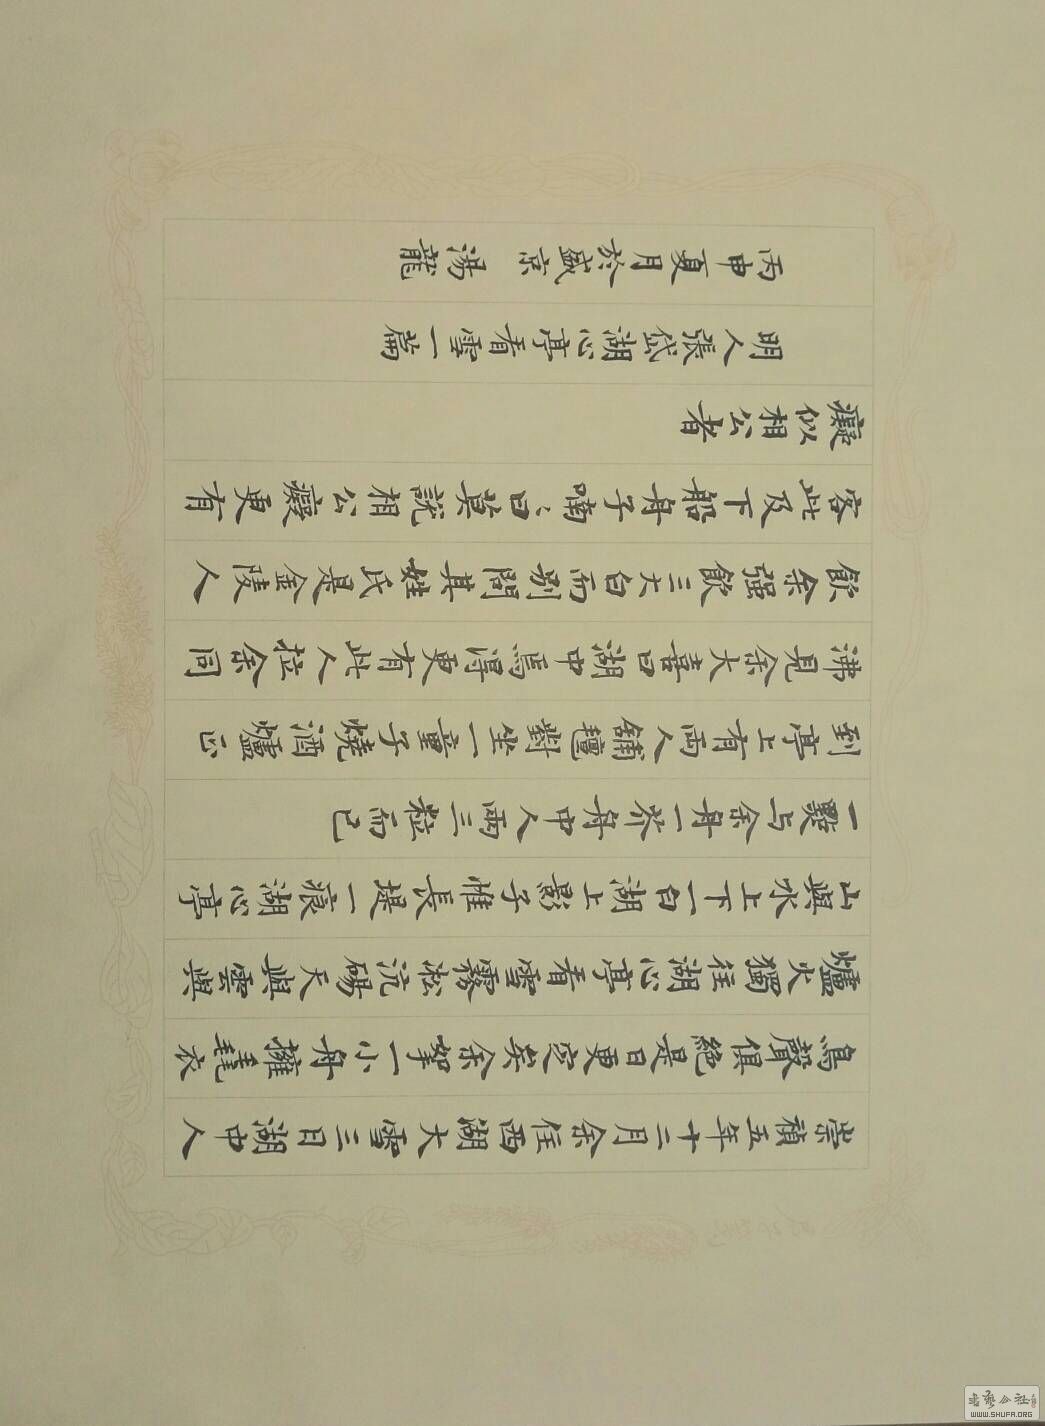 崇禎五年十二月余住西湖大雪三日湖中人
鳥聲俱絶是日更定矣余挐一小舟擁毳衣
爐火獨往湖心亭看雪霧淞沆碭天與雲與
山與水上下一白湖上影子惟長堤一痕湖心亭
一點与余舟一芥舟中人兩三粒而已
到亭上有兩人舖氈對坐一童子燒酒爐正
沸見余大喜曰湖中焉得更有此人拉余同
飲余强飲三大白而别問其姓氏是金陵人
客此及下船舟子喃〻曰莫説相公癡更有
癡似相公者
明人張岱湖心亭看雪一篇
丙申夏月於盛京 湯龍
WWW.SHUFA.ORG